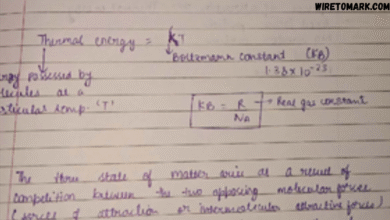 WIRETOMARK.COM
Thermal energy = KT
Boltzmann constant (KB)
1.38 x 10^-23
rgy possessed by
lecules at a
rticular temp. 'T'
KB = R / Na → Real gas constant
The three state of matter arise as a result of
competition between the two opposing molecular forces
(forces of attraction or intermolecular attractive forces)